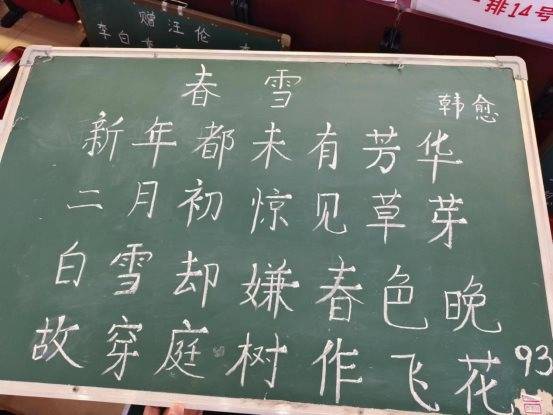 赠汪伦
李白
排14号
春雪
韩愈
新年都未有芳华
二月初惊见草芽
白雪却嫌春色晚
故穿庭树作飞花
93